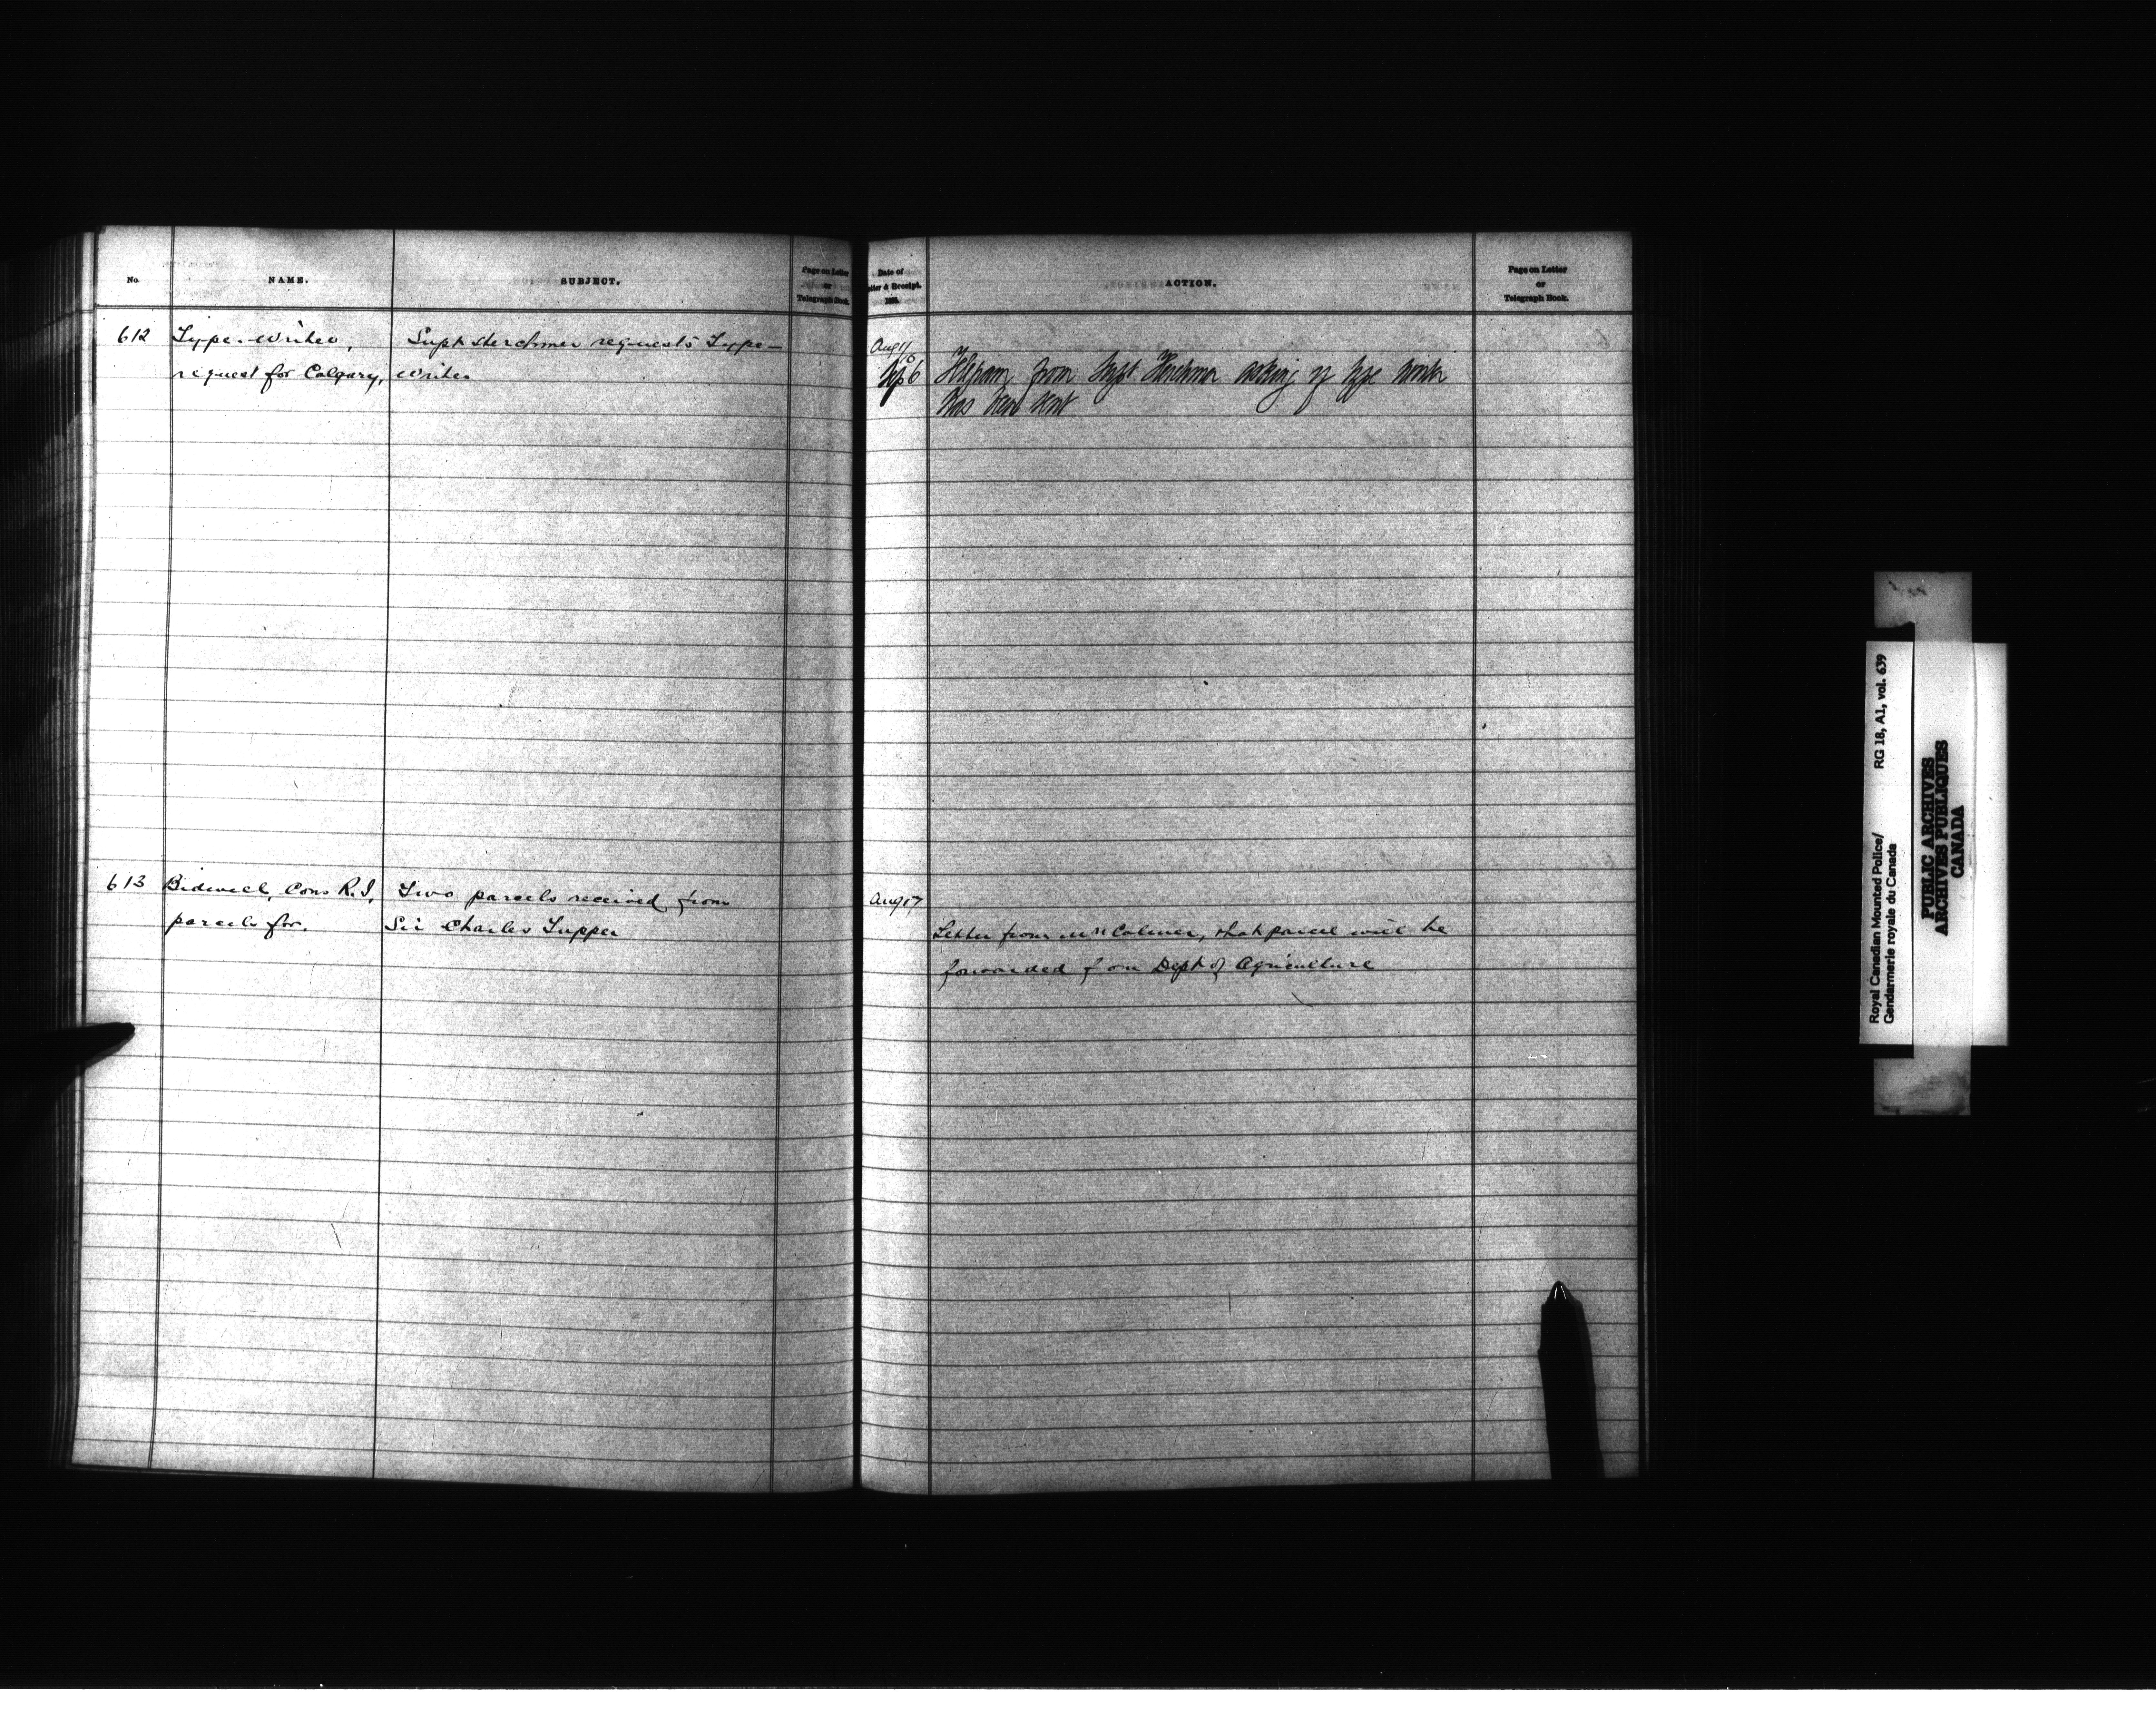 No.
NAME.
SUBJECT.
Page on Letter
or
Telegraph Book.
612
Type-writer,
request for Calgary,
Supt Herchmer requests Type-
writer
613
Bidwell, Cons R.I,
parcels for.
Two parcels received from
Sir Charles Tupper
Date of
Letter & Receipt.
ACTION.
Page on Letter
or
Telegraph Book.
Aug 16
Sep 6 Telegram from Supt Herchmer asking if type writer
has been sent
Aug 17
Letter from Mr Colmer, that parcel will be
forwarded from Dept of Agriculture
Royal Canadian Mounted Police/
Gendarmerie royale du Canada
RG 18, A1, vol. 639
PUBLIC ARCHIVES
ARCHIVES PUBLIQUES
CANADA